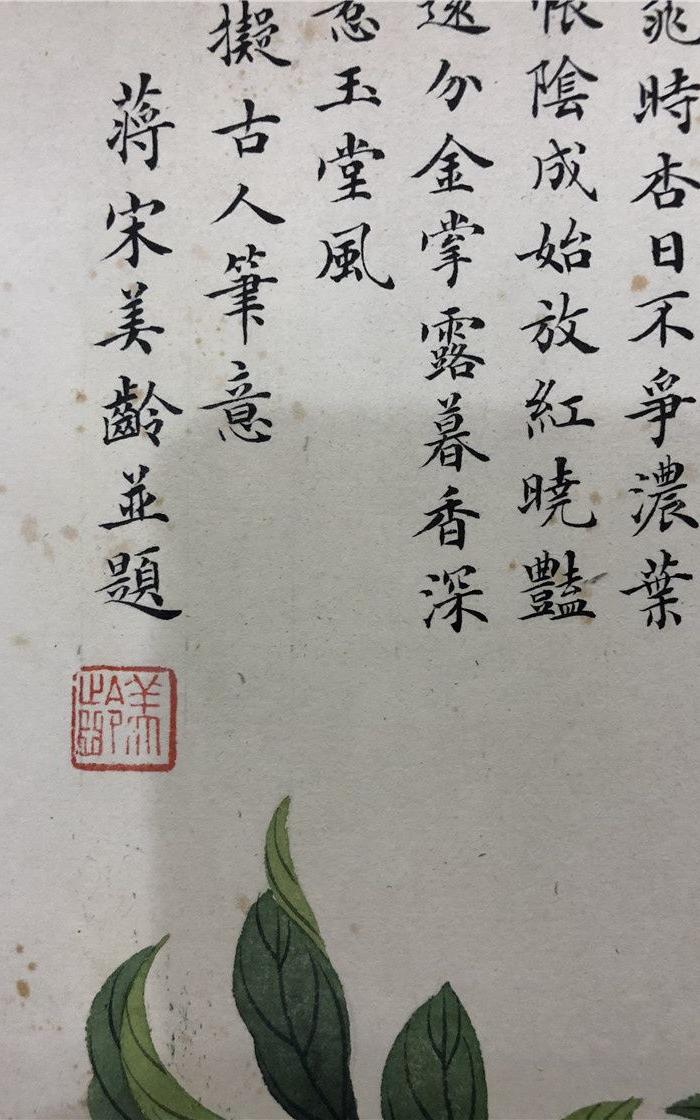 桃時杏日不爭濃葉
帳陰成始放紅曉豔
遠分金掌露暮香深
惹玉堂風
擬古人筆意
蔣宋美齡並題
美齡